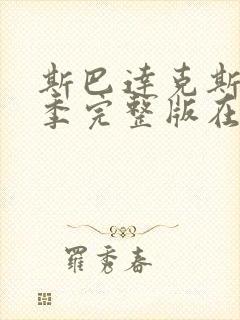 斯巴达克斯
季完整版在
羅秀春